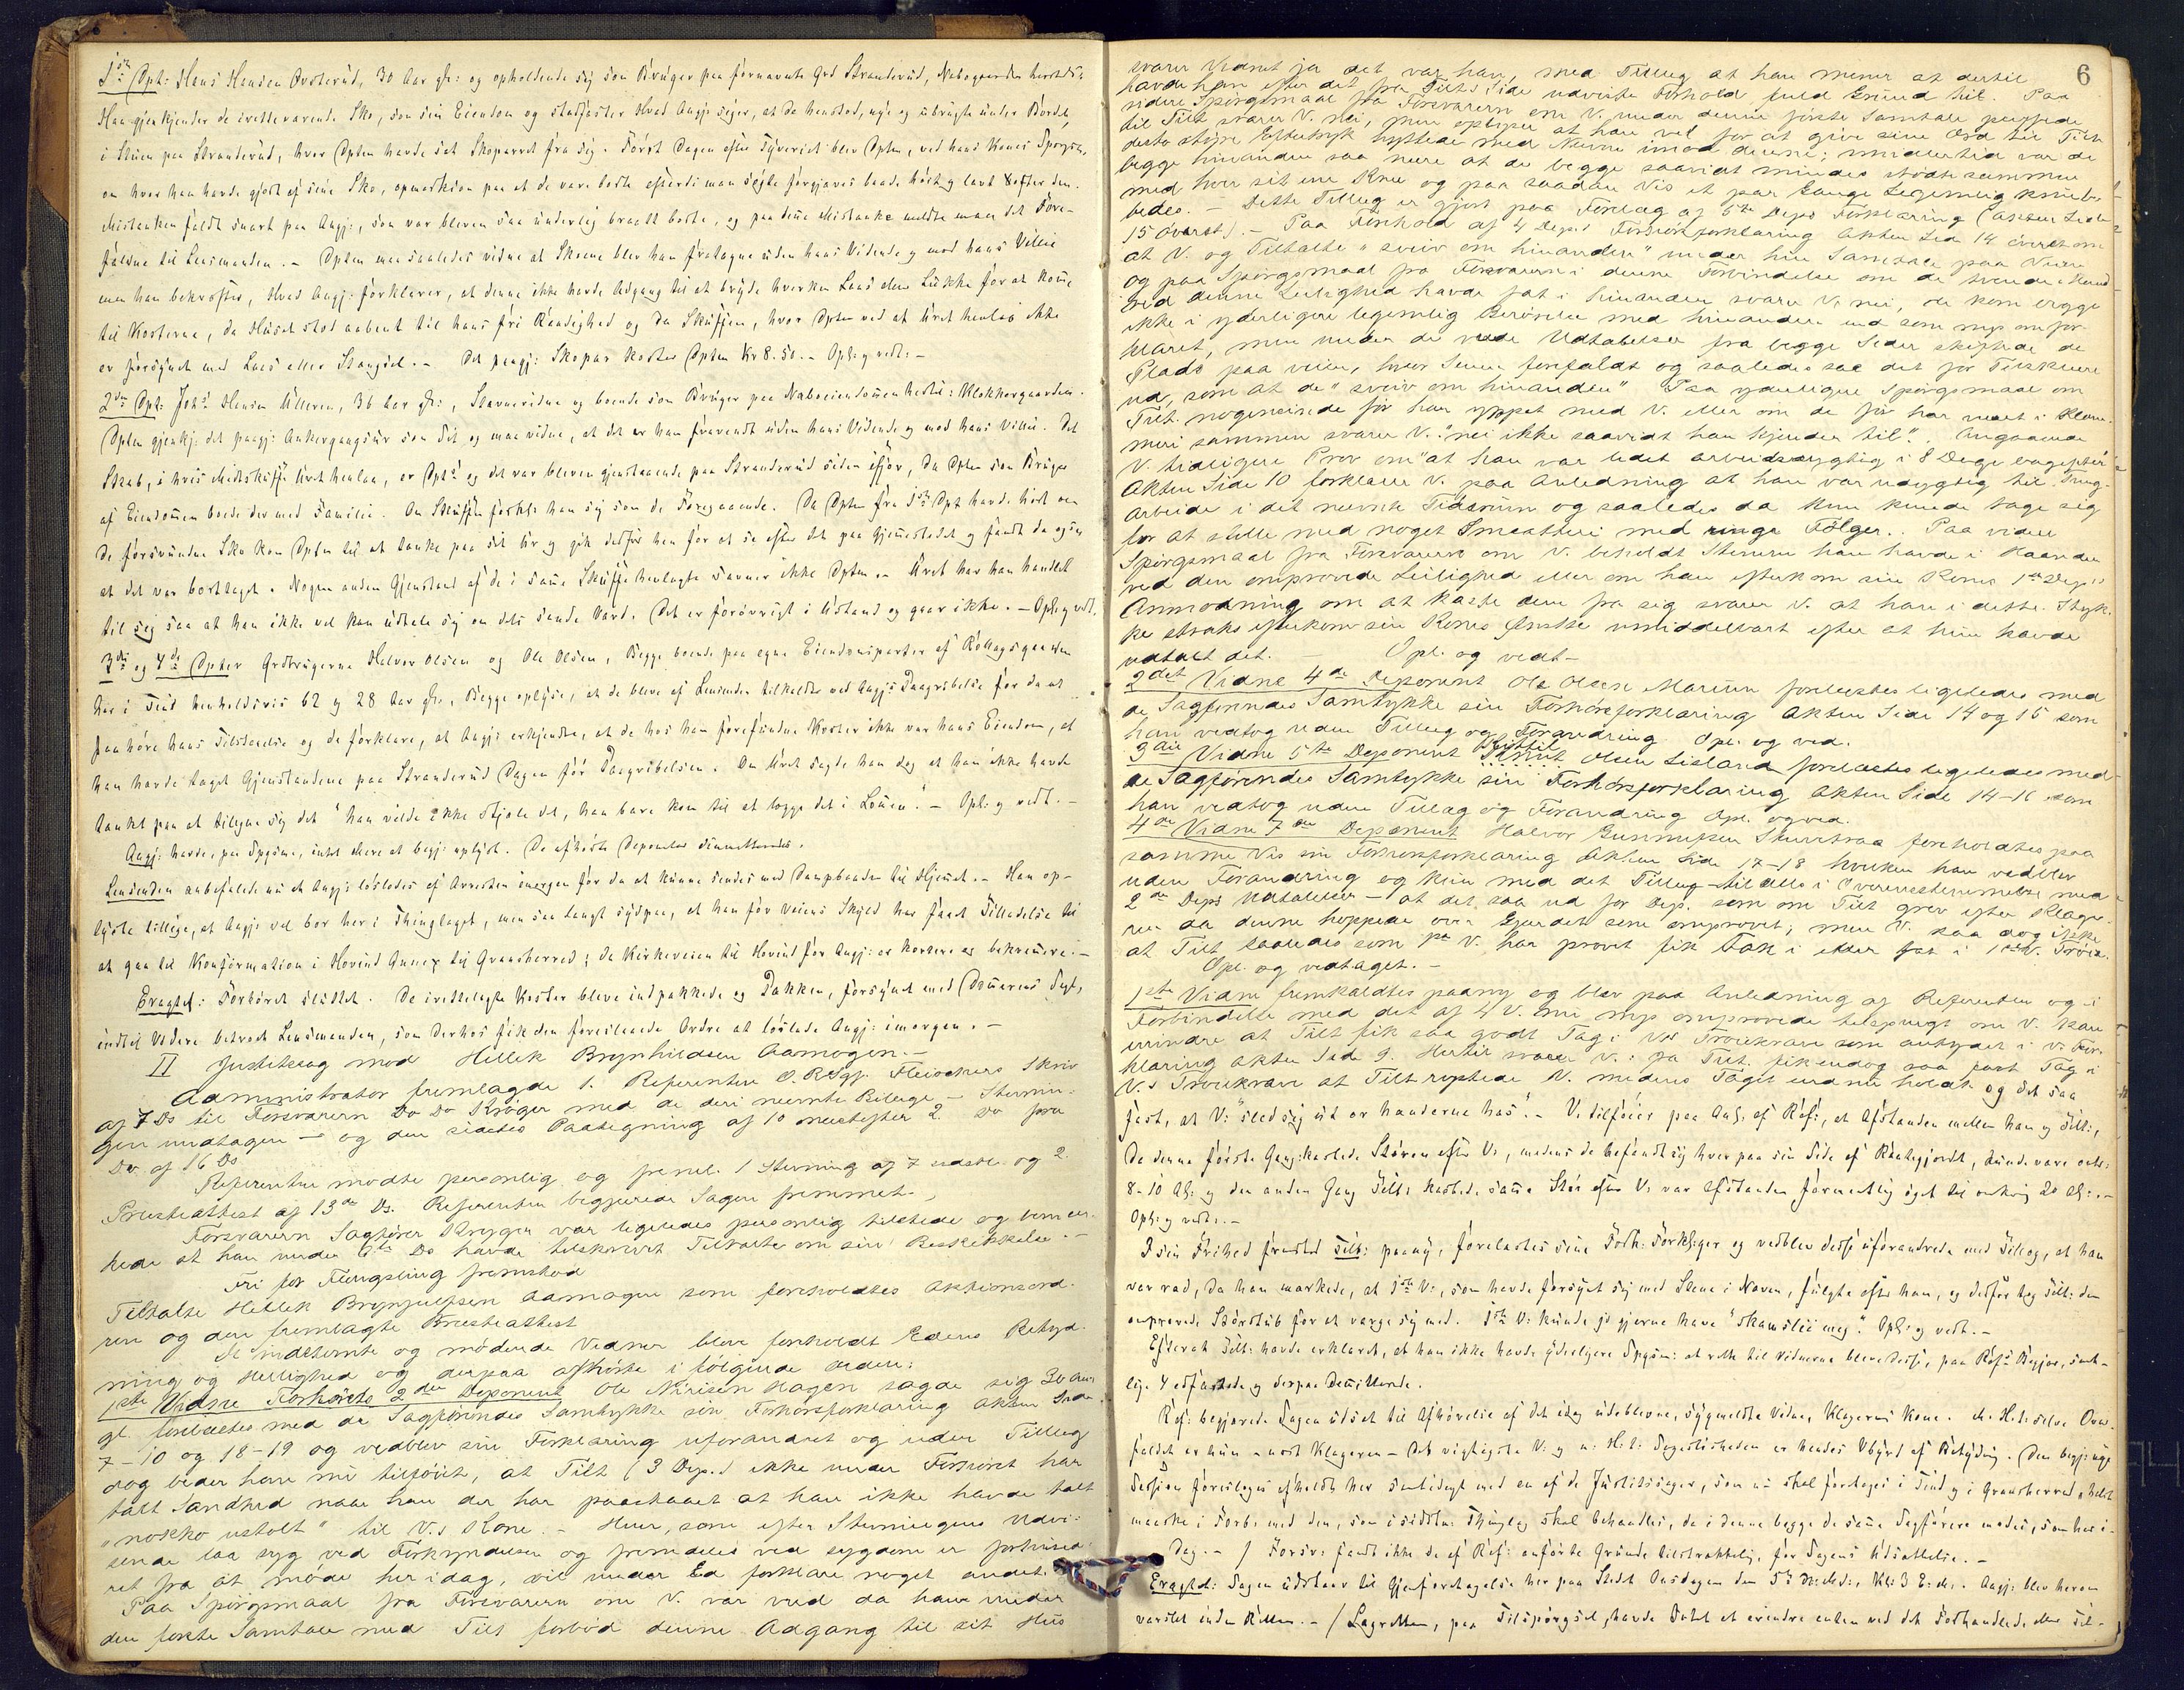 1ste Dpt: Hans Hansen Øvsterud, 30 Aar gl: og opholdende sig som Bruger paa fornævnte Grd Stranderud, Nabogaarden herstdt:
Han gjenkjender de iretteværende Sko, som sin Eiendom og stadfæster Hvad Angj: siger, at de henstod, nye og ubrugte under Bordet,
i Stuen paa Stranderud, hvor Dpten havde sat Skoparret fra sig. Først Dagen efter Tyveriet blev Dpten, ved hans Kones Spørgsm.
om hvor han havde gjort af sine Sko, opmærksom paa at de vare borte efterdi man søgte forgjæves baade høit og lavt efter dem.
Mistanken faldt snart paa Angj:, som var bleven saa underlig braatt borte, og paa denne Mistanke meldte man det Fore-
faldne til Lensmanden. – Dpten maa saaledes vidne at Skoene blev ham fratagne uden hans Vidende og mod hans Villie
men han bekræfter, Hvad Angj: forklarer, at denne ikke havde Adgang til at bryde hverken Laas eller Lukke for at komme
til Kosterne, da Huset stod aabent til hans fri Raadighed og da Skuffen, hvor Dpten ved at Uret henlaa ikke
er forsynet med Laas eller Stængsel. – Det paagj: Skopar kostes Dpten Kr 8.50. – Opl: og vedt: –
2den Dpt: Johs Hansen Ulleren, 36 Aar gl:, Stavneridne og boende som Bruger paa Naboeiendommen herstd: Klokkergaarden.
Dpten gjenkj: det paagj: Ankergangsur som sit og maa vidne, at det er ham fravendt uden hans Vidende og mod hans Villie. Det
Skab, i hvis Midtskuffe Uret henlaa, er Dpts og det var bleven gjenstaaende paa Stranderud siden ifjor, da Dpten som Bruger
af Eiendommen boede der med Familie. Om Skuffen forkl: han sig som de Foregaaende. Da Dpten fra 1ste Dpt havde hørt om
de forsvundne Sko kom Dpten til at tænke paa sit Ur og gik derfor hen for at se efter det paa Gjemmestedet og fandt da ogsaa
at det var borttaget. Nogen anden Gjenstand af de i samme Skuffe henlagte savner ikke Dpten. – Uret har han handlet
til sig saa at han ikke vel kan udtale sig om dets sande Værd. Det er forøvrigt i Ustand og gaar ikke. – Opl: og vedt.
3die og 4de Dpter Grdbrugerne Halvor Olsen og Ole Olsen, Begge boende paa egne Eiendomsparter af Rollagsgaarden
her i Tind henholdsvis 62 og 28 Aar gl., Begge oplyse, at de bleve af Lensmden tilkaldte ved Angjs Paagribelse for da at
paahøre hans Tilstaaelse og de forklare, at Angj: erkjendte, at de hos ham forefundne Koster ikke var hans Eiendom, at
han havde taget Gjenstandene paa Stranderud Dagen før Paagribelsen. Om Uret sagde han dog at han ikke havde
tænkt paa at tilegne sig det "han vilde ikke stjæle det, han bare kom til at lægge det i Lommen". – Opl: og vedt. –
Angj: havde, paa Spgsm., intet Mere at begj: oplyst. De afhørte Deponenter dimitteredes.
Lensmden anbefalede nu at Angj: løslodes af Arresten imorgen for da at kunne sendes med Dampbaaden til Hjemmet. – Han op-
lyste tillige, at Angj: vel bor her i Thinglaget, men saa langt sydpaa, at han for Veiens Skyld har faaet Tilladelse til
at gaa til Konfirmation i Hovind Annex til Gransherred; da Kirkeveien til Hovind for Angj: er kortere og bekvemmere. –
Eragtet: Forhøret sluttet. De irettelagte Koster bleve indpakkede og Pakken, forsynet med Dommerens Segl,
indtil Videre betroet Lensmanden, som derhos fik den foreslaaede Ordre at løslade Angj: imorgen. –
II Justitssag mod Hellek Brynhildsen Aamogen. –
Administrator fremlagde 1. Referenten O.R.Sgf. Fleischers Skriv
af 7 Ds til Forsvareren Do Do Krøger med de deri nævnte Bilage – Stevnin-
gen undtagen – og den sidstes Paategning af 10 næstefter 2 Do fra
Do af 16 Ds
Referenten mødte personlig og freml. 1 Stevning af 7 sidstl. og 2.
Præsteattest af 13de Ds. Referenten begjærede Sagen fremmet. –
Forsvareren Sagfører Krøger var ligeledes personlig tilstede og bemær-
kede at han under 6te Ds havde tilskrevet Tiltalte om sin Beskikkelse. –
Fri for Fængsling fremstod
Tiltalte Hellek Brynjulfsen Aamogen som foreholdtes Aktionsord-
ren og den fremlagte Præsteattest
De indstevnte og mødende Vidner bleve foreholdt Edens Betyd-
ning og Hellighed og derpaa afhørte i følgende Orden:
1ste Vidne Forhørets 2den Deponent Ole Nirisen Hagen sagde sig 30 Aar
gl. forelæstes med de Sagførendes Samtykke sin Forhørsforklaring Akten Side
7-10 og 18-19 og vedblev sin Forklaring uforandret og uden Tillæg
dog beder han nu tilføiet, at Tilt (3 Dep.) ikke under Forhøret har
talt Sandhed naar han der har paastaaet at han ikke havde talt
"nokko ustolt" til V.s Kone. – Hun, som efter Stevningens Udvi-
sende laa syg ved Forkyndelsen og fremdeles ved sygdom er forhind-
ret fra at møde her idag, vil under Ed forklare noget andet.
Paa Spørgsmaal fra Forsvareren om V. var vred da han under
den første Samtale med Tilt forbød denne Adgang til sit Hus
6
svarer Vidnet ja det var han, med Tillæg at han mener at dertil
havde han efter det fra Tilt.s Side udviste Forhold fuld Grund til. Paa
videre Spørgsmaal fra Forsvareren om V. under denne første Samtale pegede
til Tilt svarer V. nei, men oplyser at han vel for at give sine Ord til Tilt
desto større Eftertryk hyttede med Næven imod denne; imidlertid var de
begge hinanden saa nære at de begge saavidt mindes stødte sammen
med hver sit ene Knæ og paa saadan Vis et par Gange Legemlig knub-
bedes. – Dette Tillæg er gjort paa Forelæg af 5te Deps Forklaring (Akten Side
15 øverst). – Paa Forehold af 4 Dep.s Forhørsforklaring Akten Sid 14 øverst om
at V. og Tiltalte "sveiv om hinanden" under hin Samtale paa Veien
og paa Spørgsmaal fra Forsvareren i denne Forbindelse om de tvende Mænd
ved denne Leilighed havde fat i hinanden svarer V. nei, de kom begge
ikke i yderligere legemlig Berørelse med hinanden end som nys omfor-
klaret, men under de vrede Udtalelser fra begge Sider skiftede de
Plads paa veien, hvor Scenen forefaldt og saaledes saa det for Tilskuere
ud, som at de "sveiv om hinanden" Paa yderligere Spørgsmaal om
Tilt. nogensinde før har yppet med V. eller om de før har været i Klam-
meri sammen svarer V. "nei ikke saavidt han kjender til". Angaaende
V. tidligere Prov om "at han var lidet arbeidsdygtig i 8 Dage bagefter"
Akten Side 10 forklarer V. paa Anledning at han var udygtig til Tung-
arbeide i det nævnte Tidsrum og saaledes da kun kunde tage sig
for at stelle med noget Smaatteri med ringe Følger. Paa videre
Spørgsmaal fra Forsvareren om V. beholdt Stenene han havde i Haanden
ved den omprovede Leilighed eller om han efterkom sin Kones 1ste Dep.s
Anmodning om at kaste dem fra sig svarer V. at han i dette Styk-
ke straks efterkom sin Kones Ønske umiddelbart efter at hun havde
udtalt det. – Opl. og vedt –
2det Vidne 4de Deponent Ole Olsen Marum forelæstes ligeledes med
de Sagførendes Samtykke sin Forhørsforklaring Akten Side 14 og 15 som
han vedtog uden Tillæg og Forandring. Opl. og ved.
3die Vidne 5te Deponent Kittil Olsen Lisland forelæstes ligeledes med
de Sagførendes Samtykke sin Forhørsforklaring Akten Side 14-16 som
han vedtog uden Tillæg og Forandring Opl. og ved.
4de Vidne 7de Deponent Halvor Gunnufsen Skurvtraa foreholdtes paa
samme Vis sin Forhørsforklaring Akten Side 17-18 hvilken han vedblev
uden Forandring og kun med det Tillæg – til dels i Overensstemmelse med
2de Deps Udtalelser – at det saa ud for Dep. som om Tilt grev efter Klage-
ren da denne hoppede over Gjærdet som omprovet, men V. saa dog ikke
at Tilt saaledes som 1ste V. har provet fik Tak i eller fat i 1ste V. Trøie.
Opl. og vedtaget. –
1ste Vidne fremkaldtes paany og blev paa Anledning af Referenten og i
Forbindelse med det af 4 V. nu nys omprovede tilspurgt om V. kan
erindre at Tilt fik saa godt Tag i V.s Trøiekrave som antydet i V. For-
klaring Akten Sid 9. Hertil svarer V.: ja Tilt fik endog saa fast Tag i
V.s Trøiekrave at Tilt ryktede V. medens Taget endnu holdt og det saa
fast, at V: "sled sig ud or haanderne has". – V. tilføier paa Anl: af Ref:, at Afstanden mellem ham og Tilt:,
da denne første Gang kastede Støren efter V:, medens de befandt sig hver paa sin Side af Raagjerdet, kunde være omtr:
8-10 Al: og den anden Gang Tilt: kastede samme Stør efter V: var Afstanden formentlig øget til omkring 20 Al: –
Opl: og vedt: –
I sin Frihed fremstod Tilt: paany, forelæstes sine Forh: Forkl:ger og vedblev disse uforandrede med Tillæg, at han
var ræd, da han mærkede, at 1ste V:, som havde forsynet sig med Stene i Næven, fulgte efter ham, og derfor tog Tilt: den
omprovede Størstub for at værge sig med. 1ste V: kunde jo gjerne have "skamslaa meg". Opl: og vedt. –
Efterat Tilt: havde erklæret, at han ikke havde yderligere Spgsm: at rette til Vidnerne bleve disse, paa Refs Begjær, samt-
lige 4 edfæstede og derpaa Demitterede.
Ref: begjærede Sagen udsat til Afhørelse af det idag udeblevne, sygmeldte Vidne, Klagerens Kone. M. H. t. selve Over-
faldet er hun – næst Klageren – det vigtigste V: og m: H: t: Søgesliteheden er hendes Udsagn af Betydning. Den begj: nye
Session foreslaaes afholdt her samtidigt med en af de Justitssager, som nu skal foretages i Tind og i Gransherred, helst
maaske i Forb: med den, som i sidstn: Thinglag skal behandles, da i denne begge de samme Sagførere mødes, som her i-
Dag. – / Forsv: fandt ikke de af Ref: anførte Grunde tilstrækkelig for Sagens Udsættelse. –
Eragtet: Sagen udstaar til Gjenforetagelse her paa Stedet Onsdagen den 5te Ds: Md:, Kl: 3 E: M:. Angj: blev herom
varslet inden Retten. – / Lagretten, paa Tilspørgsel, havde Intet at erindre enten ved det Forhandlede eller Til-